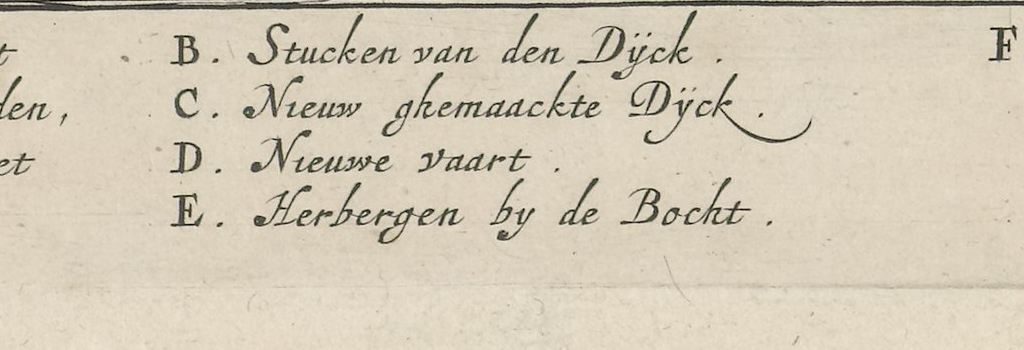 t B. Stucken van den Dÿck. F
den, C. Nieuw ghemaackte Dÿck.
et D. Nieuwe vaart.
E. Herbergen by de Bocht.